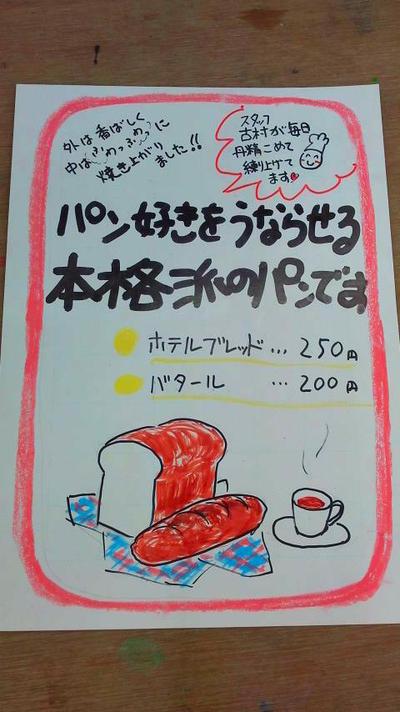 外は番ばしく
中はふわっふわっに
焼き上がりました!!
スタッフ
古村が毎日
丹精こめて
練り上げて
ます
パン好きをうならせる
本格派のパンです
ホテルブレッド…250円
バタール …200円